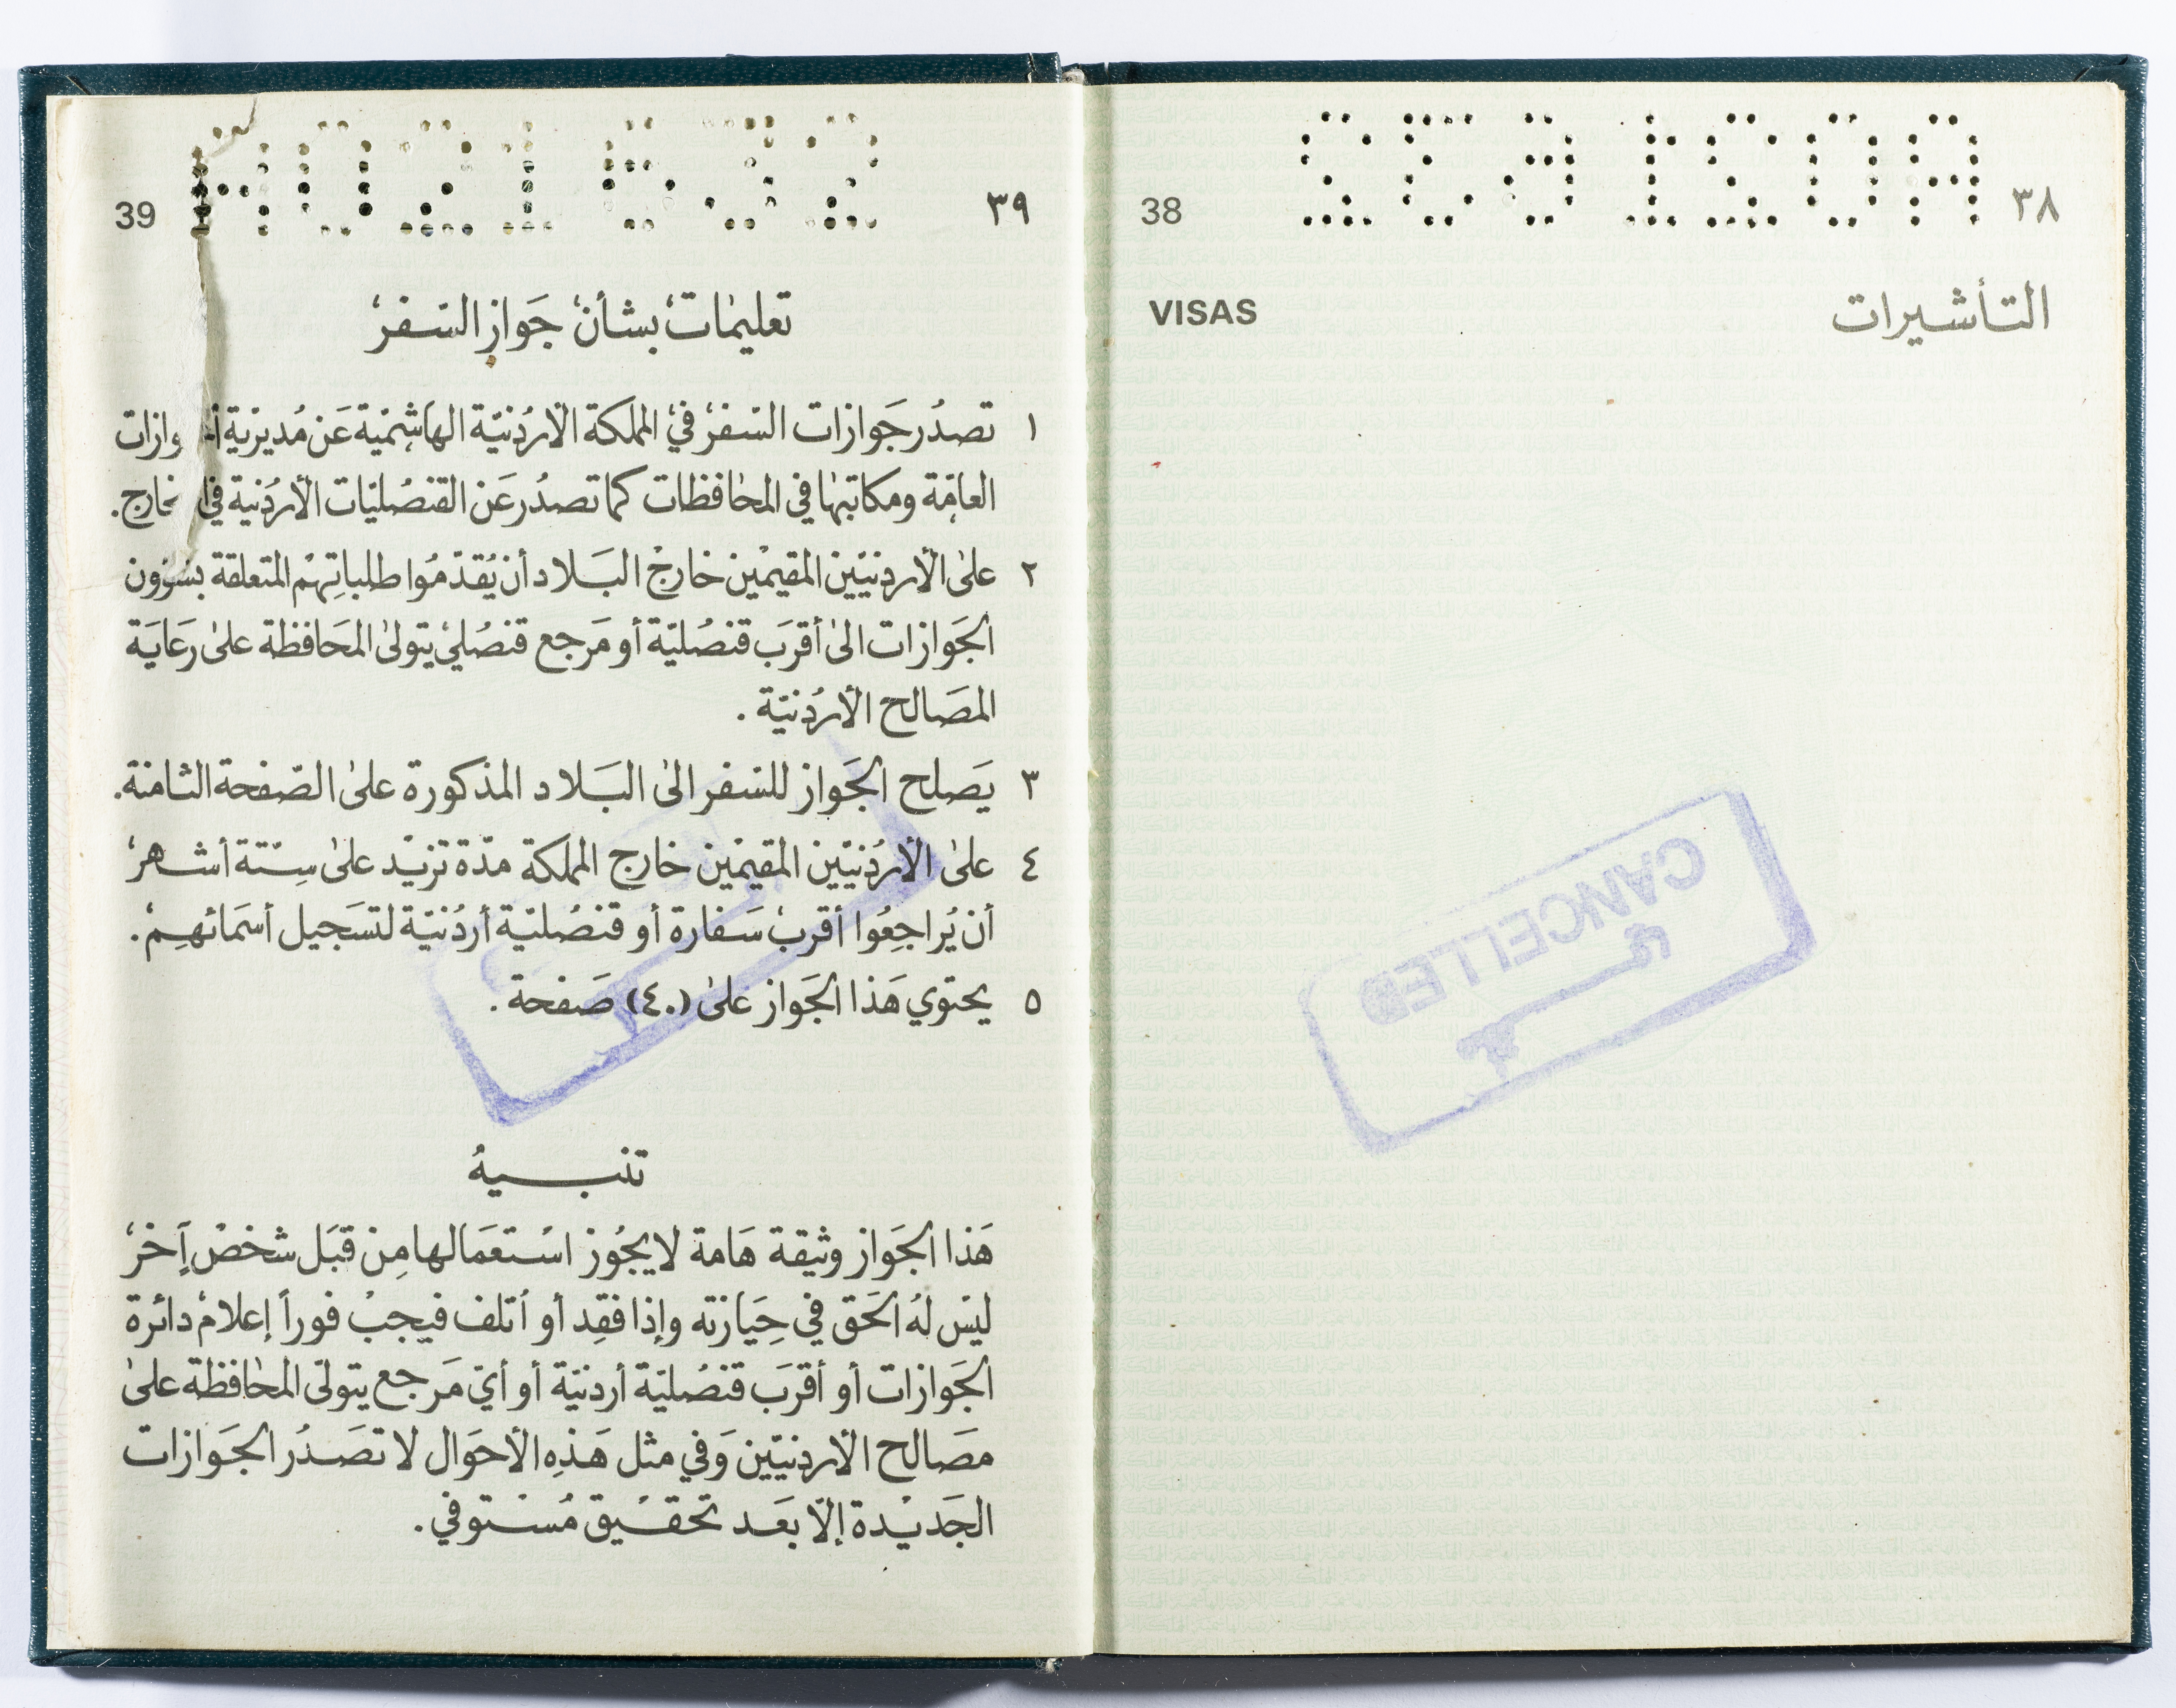 ٣٨
38
التأشيرات
VISAS
CANCELLED
ملغى
٣٩
39
تعليمات بشأن جواز السفر
١ تصدر جوازات السفر في المملكة الأردنية الهاشمية عن مديرية وازات
العامة ومكاتبها في المحافظات كما تصدر عن القنصليات الأردنية في خارج.
٢ على الأردنيين المقيمين خارج البلاد أن يقدموا طلباتهم المتعلقة بشؤون
الجوازات الى أقرب قنصلية أو مرجع قنصلي يتولى المحافظة على رعاية
المصالح الأردنية .
٣ يصلح الجواز للسفر الى البلاد المذكورة على الصفحة الثامنة.
٤ على الأردنيين المقيمين خارج المملكة مدة تزيد على ستة أشهر
أن يراجعوا أقرب سفارة أو قنصلية أردنية لتسجيل أسمائهم.
٥ يحتوي هذا الجواز على (٤٠) صفحة .
تنبيه
هذا الجواز وثيقة هامة لا يجوز استعمالها من قبل شخص آخر
ليس له الحق في حيازته وإذا فقد أو أتلف فيجب فوراً إعلام دائرة
الجوازات أو أقرب قنصلية أردنية أو أي مرجع يتولى المحافظة على
مصالح الأردنيين وفي مثل هذه الأحوال لا تصدر الجوازات
الجديدة إلا بعد تحقيق مستوفي .